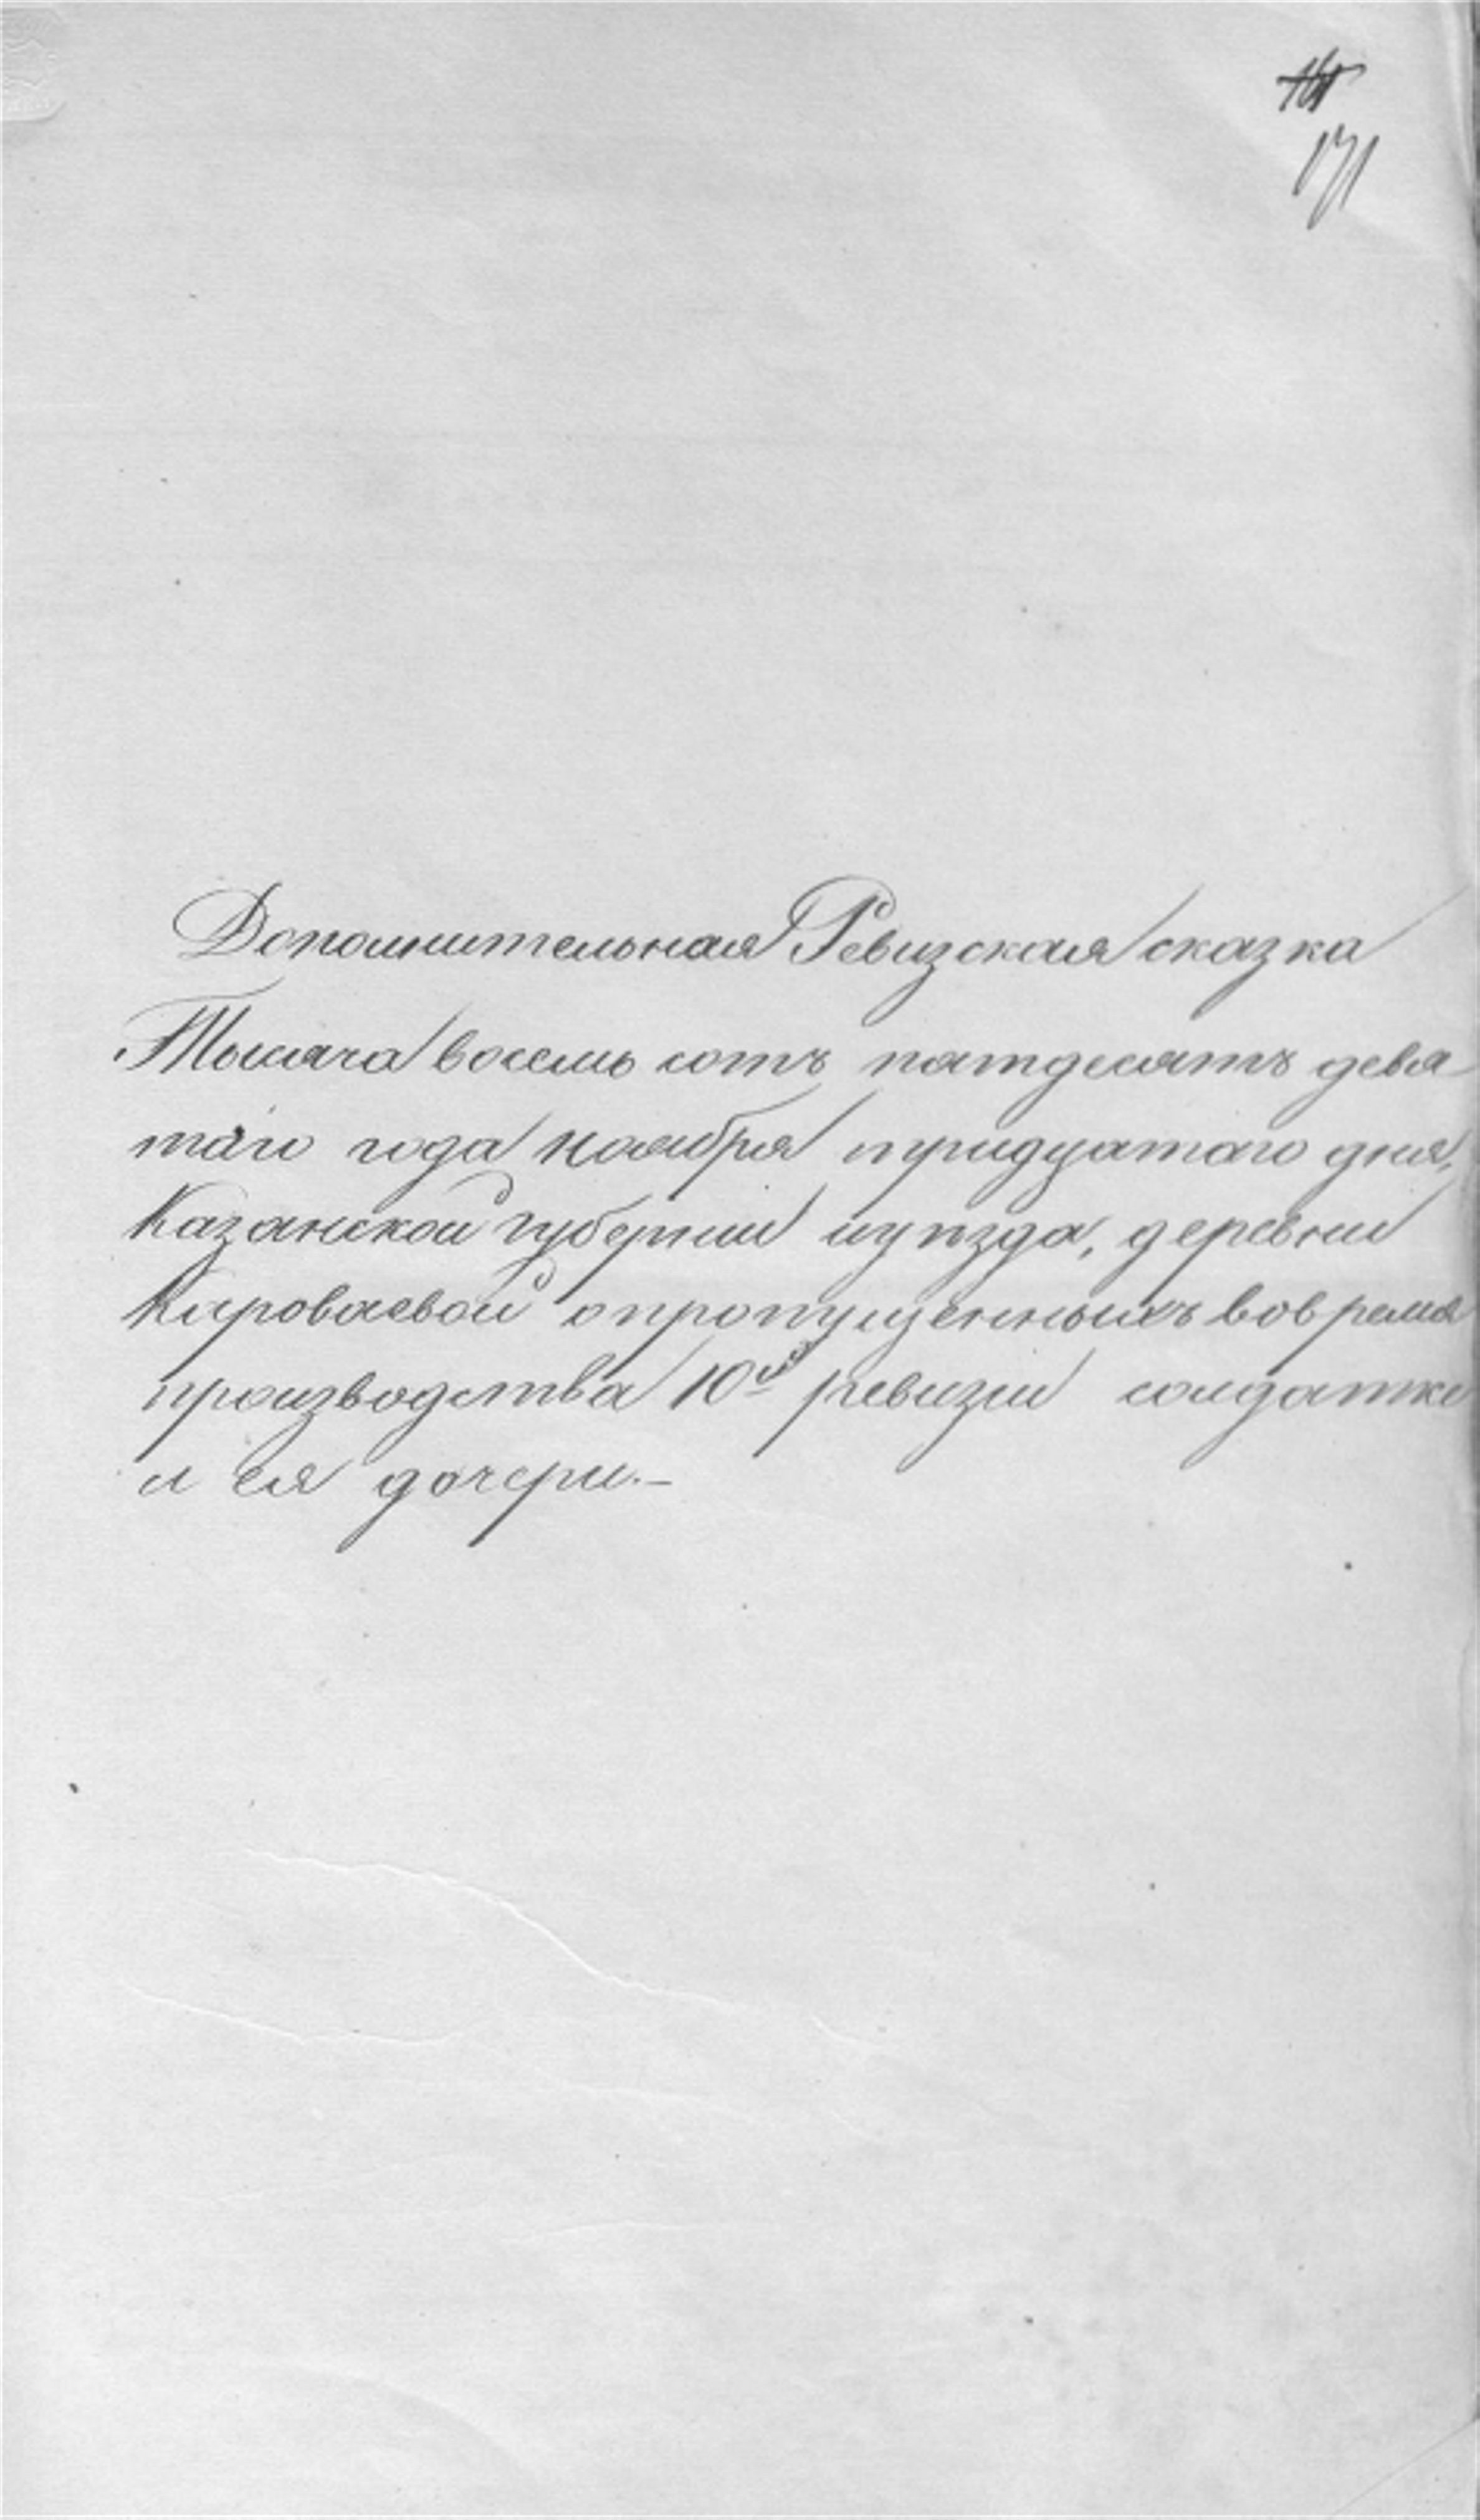 171
Дополнительная Ревизская сказка
Тысяча восемь сотъ пятдесятъ девя
таго года ноября тридцатаго дня,
Казанской губернии иуѣзда, деревни
Караваевой опропущенныхъ вовремя
производства 10й ревизіи солдатке
и ея дочери.—